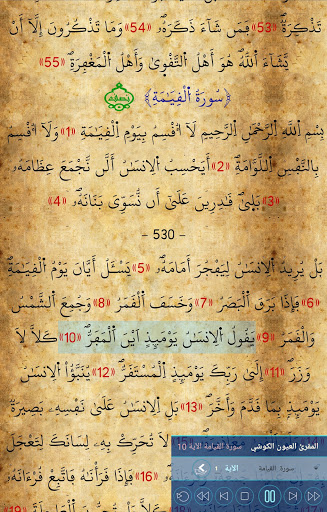 تَذْكِرَةٌ ‹53› فَمَن شَآءَ ذَكَرَهُۥ ‹54› وَمَا تَذْكُرُونَ إِلَّآ أَنْ
يَّشَآءَ ٱللَّهُ هُوَ أَهْلُ ٱلتَّقْوٜىٰ وَأَهْلُ ٱلْمَغْفِرَةِ ‹55›
﴿سُورَةُ ٱلْقِيَٰمَةِ﴾
بِسْمِ ٱللَّهِ ٱلرَّحْمَٰنِ ٱلرَّحِيمِ لَآ أُقْسِمُ بِيَوْمِ ٱلْقِيَٰمَةِ ‹1› وَلَآ أُقْسِمُ
بِالنَّفْسِ ٱللَّوَّامَةِ ‹2› أَيَحْسِبُ ٱلْإِنسَٰنُ أَلَّن نَّجْمَعَ عِظَامَهُۥ
‹3› بَلٜىٰ قَٰدِرِينَ عَلَىٰٓ أَن نُّسَوِّىَ بَنَانَهُۥ ‹4›
- 530 -
بَلْ يُرِيدُ ٱلْإِنسَٰنُ لِيَفْجُرَ أَمَامَهُۥ ‹5› يَسْـَٔلُ أَيَّانَ يَوْمُ ٱلْقِيَٰمَةِ
‹6› فَإِذَا بَرَقَ ٱلْبَصَرُ ‹7› وَخَسَفَ ٱلْقَمَرُ ‹8› وَجُمِعَ ٱلشَّمْسُ
وَالْقَمَرُ ‹9› يَقُولُ ٱلْإِنسَٰنُ يَوْمَئِذٍ أَيْنَ ٱلْمَفَرُّ ‹10› كَلَّا لَا
وَزَرَ ‹11› إِلَىٰ رَبِّكَ يَوْمَئِذٍ ٱلْمُسْتَقَرُّ ‹12› يُنَبَّؤُا ٱلْإِنسَٰنُ
يَوْمَئِذٍ بِمَا قَدَّمَ وَأَخَّرَ ‹13› بَلِ ٱلْإِنسَٰنُ عَلَىٰ نَفْسِهِۦ بَصِيرَةٌ
لَا تُحَرِّكْ بِهِۦ لِسَانَكَ لِتَعْجَلَ
‹16› فَإِذَا قَرَأْنَٰهُ فَاتَّبِعْ قُرْءَانَهُۥ
المقرئ العيون الكوشي سورة القيامة الآية 10
سورة القيامة الآية 1